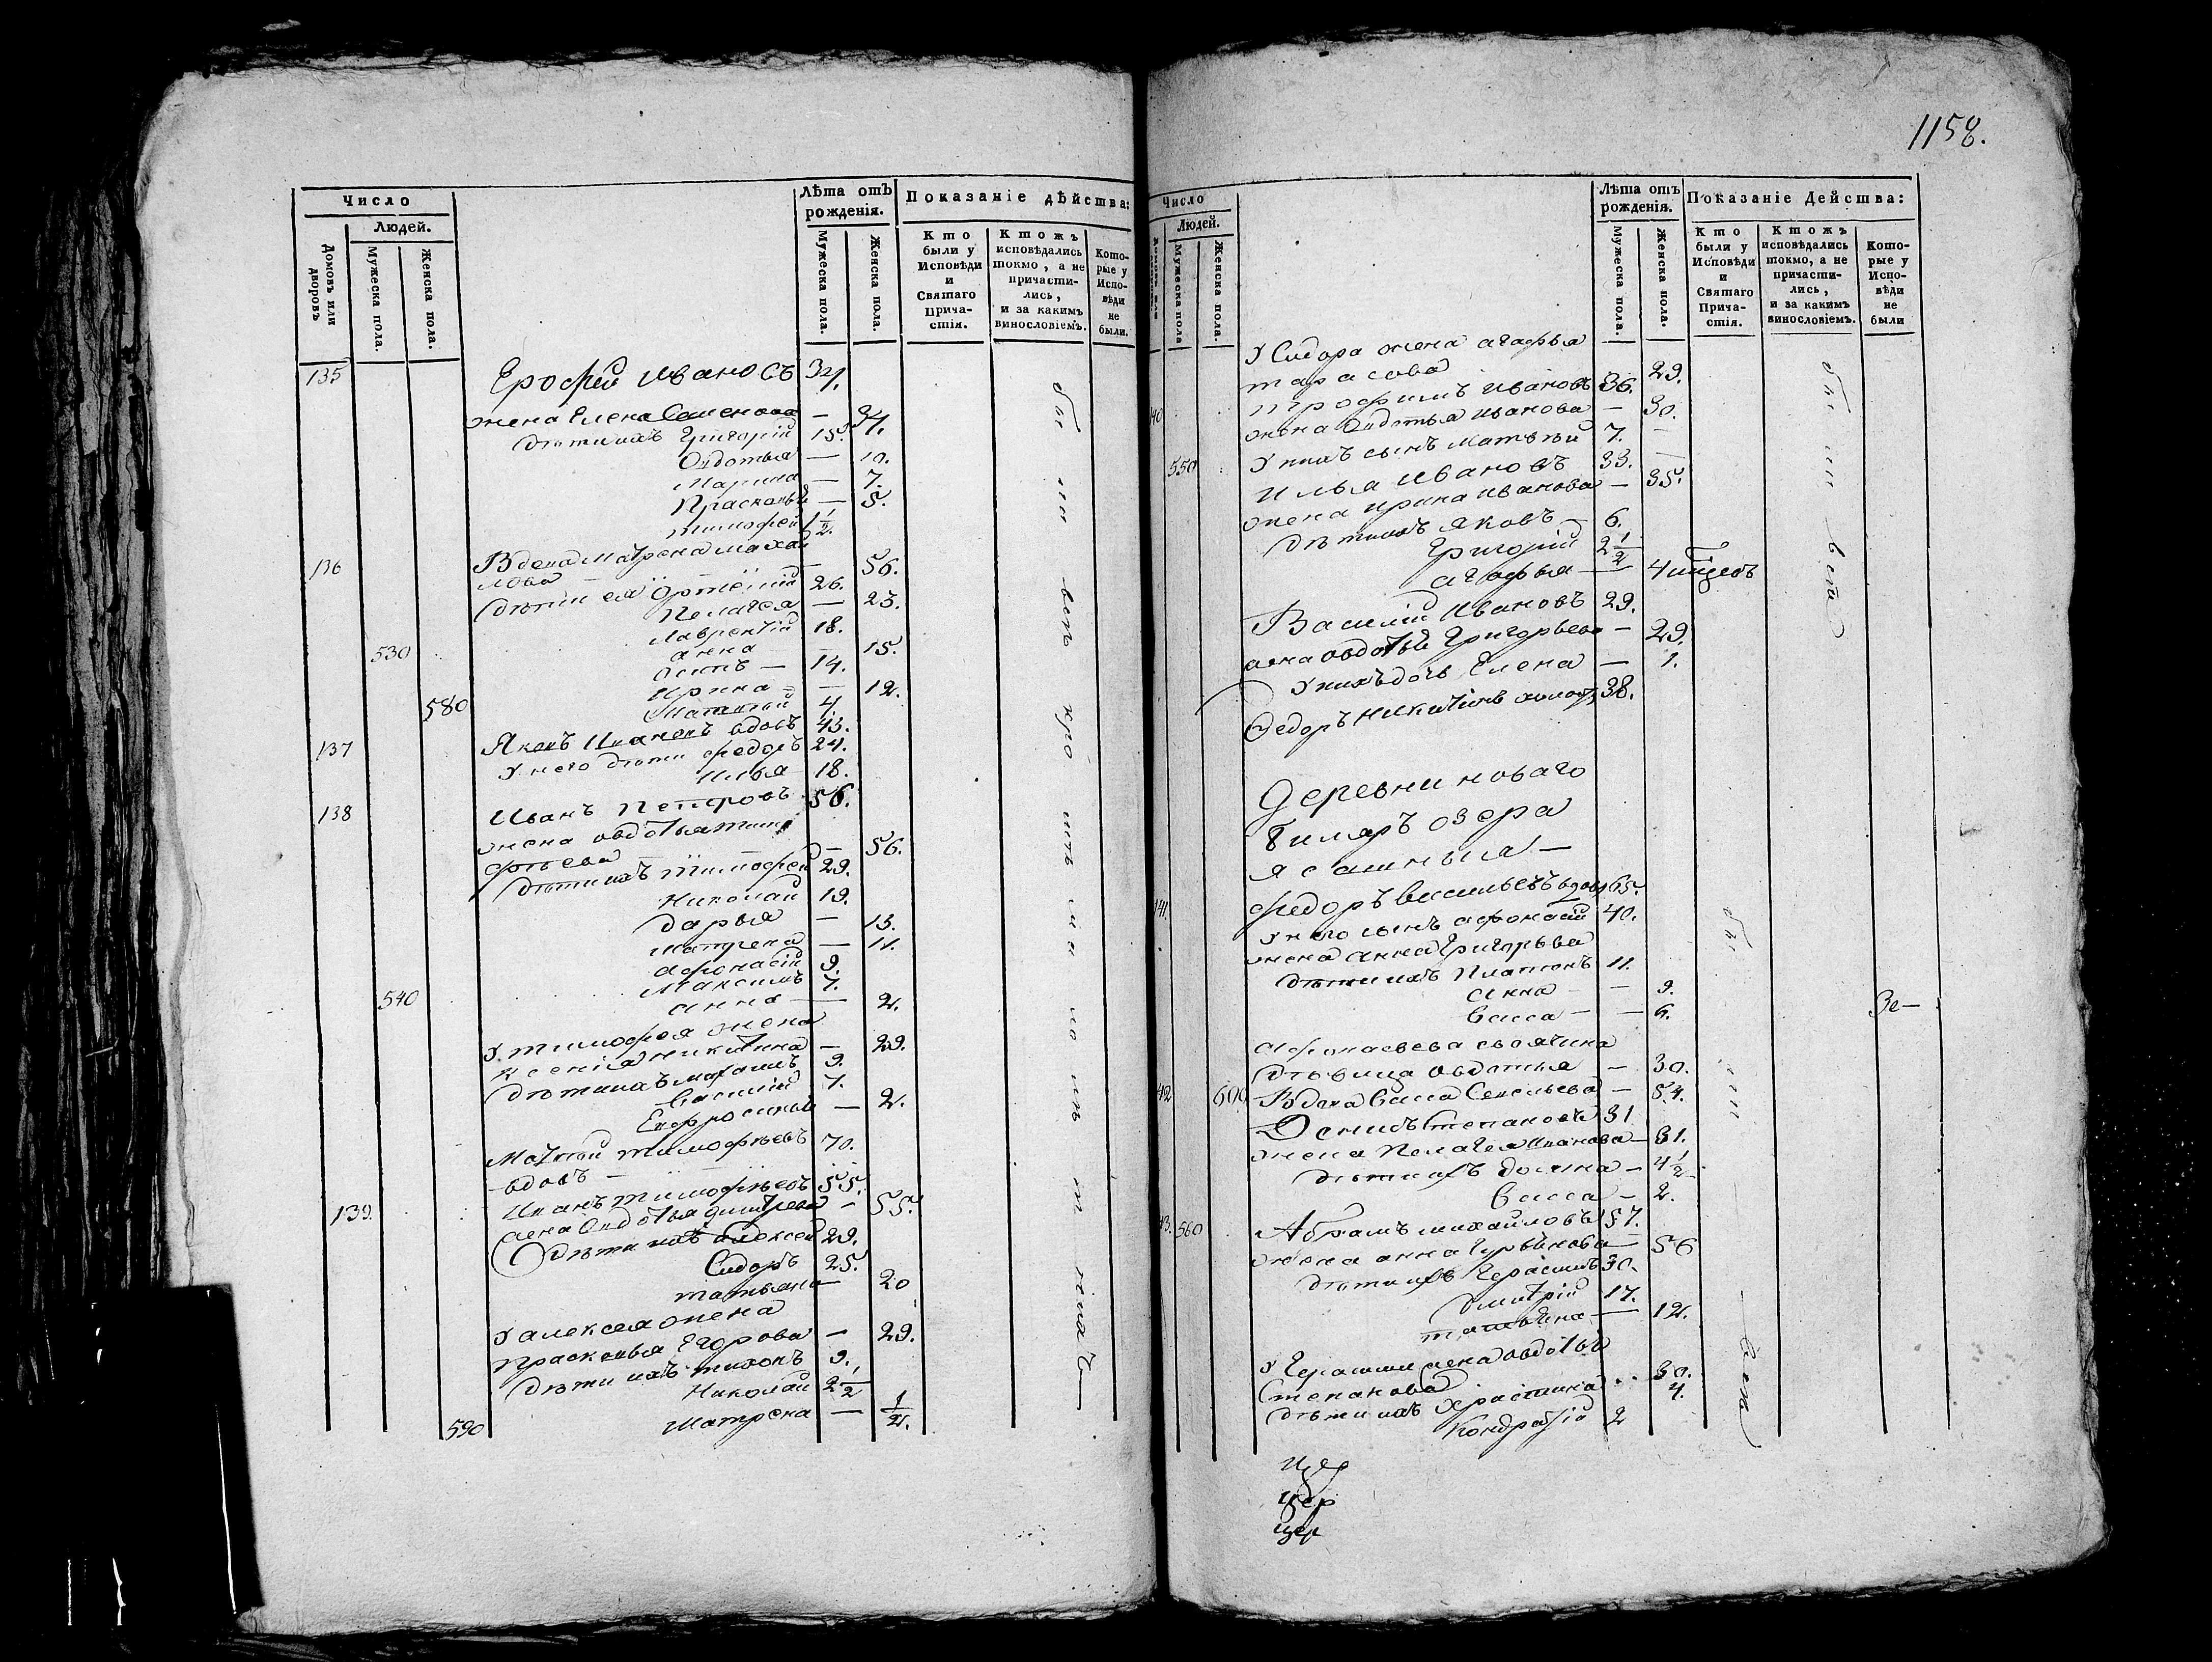 1158.
Число
Людей.
Домовъ или дворовъ
Мужеска пола.
Женска пола.
Лѣта отъ рожденія.
Мужеска пола.
Женска пола.
Показаніе дѣйства:
Кто были у Исповѣди и Святаго Причастія.
Ктожъ исповѣдались токмо, а не причастились, и за какимъ винословіемъ.
Которые у Исповѣди не были.
135 Ерофей Ивановъ 37.
жена Елена Семенова — 37.
дѣти ихъ Григорій 15.
Овдотья — 10.
Марина — 7.
Прасковья — 5.
Тимофей 1 1/2.
136 Вдова Матрена Михай
лова — 56.
дѣти ея Ортемій 26.
Пелагея — 23.
Лаврентій 18.
530 анна — 15.
Осипъ — 14.
Ирина — 12.
580 Матвей 4.
137 Яковъ Ивановъ вдовъ 43.
У него дѣти федоръ 24.
Илья 18.
138 Иванъ Петровъ 56.
жена овдотья Тимо
фѣева — 56.
дѣти ихъ Тимофей 29.
Николай 19.
дарья — 13.
Матрена — 11.
афонасій 9.
540 Максимъ 7.
анна — 2.
У тимофея жена
ксенія никитина — 29.
дѣти ихъ 9.
Василій 7.
Ефросинья — 2.
Матвей тимофѣевъ 70.
вдовъ —
139. Иванъ тимофѣевъ 55.
жена Овдотья дмитрева — 55.
дѣти ихъ алексей 29.
Сидоръ 25.
татьяна — 20
У алексея жена
прасковья Егорова — 29.
дѣти ихъ тихонъ 9.
Николай 2 1/2
590 Матрена — 1/2.
Число
Людей.
Мужеска пола
Женска пола.
Лѣта отъ рожденія.
Мужеска пола.
Женска пола.
Показаніе Действа:
Кто были у Исповѣди и Святаго Причастія.
Ктожъ исповѣдались токмо, а не причастились, и за какимъ винословіемъ.
Которые у Исповѣди не были
У Сидора жена агафья
тарасова 29.
140 трофимъ ивановъ 36.
жена Овдотья иванова — 30.
У нихъ сынъ Матвѣй 7. —
550 Илья ивановъ 33.
жена ирина иванова — 35.
дѣти ихъ яковъ 6.
Григорій 2 1/2
агафья — 4
Василій ивановъ 29.
жена овдотья Григорьева — 29.
У нихъ дочь Елена — 1.
Федоръ никитинъ холостъ 38.
деревни новаго
Биляръ озера
ясашныя —
141. федоръ васильевъ вдовъ 65.
У него сынъ афонасій 40.
жена анна Григорьева
дѣти ихъ Платонъ 11.
анна — 9.
васса — 6.
афонасьева своячина
дѣвица овдотья — 30.
142 600 Вдова васса Савельева — 54.
Демидъ степановъ 31
жена Пелагея иванова — 31.
дѣти ихъ домна — 4 1/2
васса — 2.
143. 560 Абрамъ михайловъ 57.
жена анна Гурьянова — 56
дѣти ихъ Герасимъ 30.
дмитрій 17.
татьяна — 12.
У Герасима жена овдотья
степанова 30.
дѣти ихъ 4.
Кондратій 2
цер
цер
цер